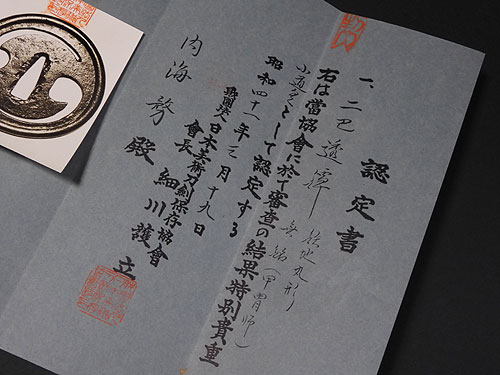 認定書
一、二巴透鐔 鉄地丸形
無銘(甲冑師)
右は當協會に於て審査の結果特別貴重
小道具として認定する
昭和四十一年三月十九日
財團法人日本美術刀劍保存協會
會長 細川護立
内海 殿